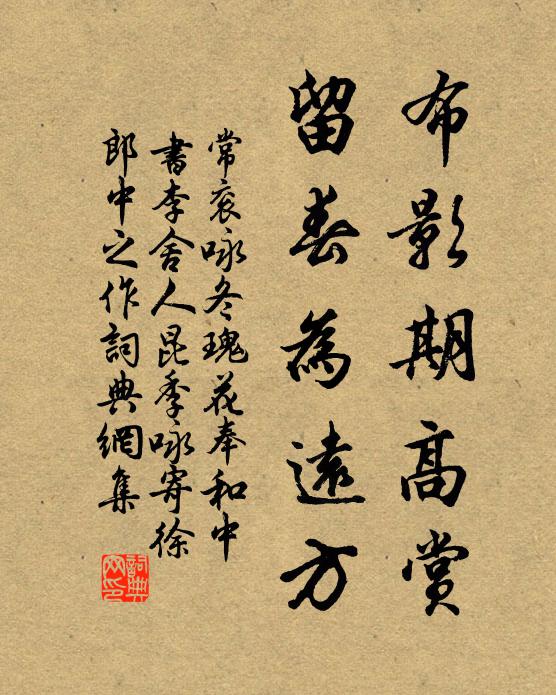 布影期高賞
留春為遠方
常衮咏冬瑰花奉和中
書李舍人昆季咏寄徐
郎中之作詞典網集
詞典網印